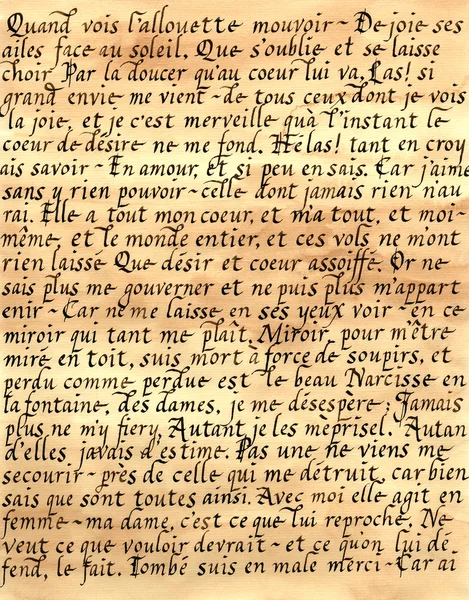 Quand vois l'allouette mouvoir ~ De joie ses
ailes face au soleil, Que s'oublie et se laisse
choir Par la doucer qu'au coeur lui va, Las! si
grand envie me vient ~ de tous ceux dont je vois
la joie, et je c'est merveille qu'à l'instant le
coeur de désire ne me fond. Hélas! tant en croy
ais savoir ~ En amour, et si peu en sais. Car j'aime
sans y rien pouvoir ~ celle dont jamais rien n'au
rai. Elle a tout mon coeur, et m'a tout, et moi-
même, et le monde entier, et ces vols ne m'ont
rien laisse Que désir et coeur assoiffé. Or ne
sais plus me gouverner et ne puis plus m'appart
enir ~ Car ne me laisse en ses yeux voir ~ en ce
miroir qui tant me plaît. Miroir, pour m'être
mire en toit, suis mort à force de soupirs, et
perdu comme perdue est le beau Narcisse en
la fontaine, des dames, je me désespère; Jamais
plus ne m'y fiery, Autant je les méprisel. Autan
d'elles javais d'estime. Pas une ne viens me
secourir ~ près de celle qui me détruit, car bien
sais que sont toutes ainsi. Avec moi elle agit en
femme ~ ma dame, c'est ce que lui reproche, Ne
veut ce que vouloir devrait ~ et ce qu'on lui dé
fend, le fait. Tombé suis en male merci ~ Car ai